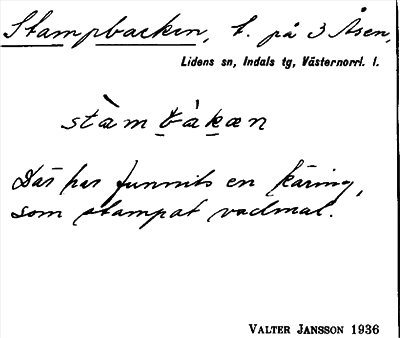 Stampbacken, t. på 3 Åsen,
Lidens sn, Indals tg, Västernorrl. l.
stàm bàkæn
Där har funnits en käring,
som stampat vadmal.
VALTER JANSSON 1936